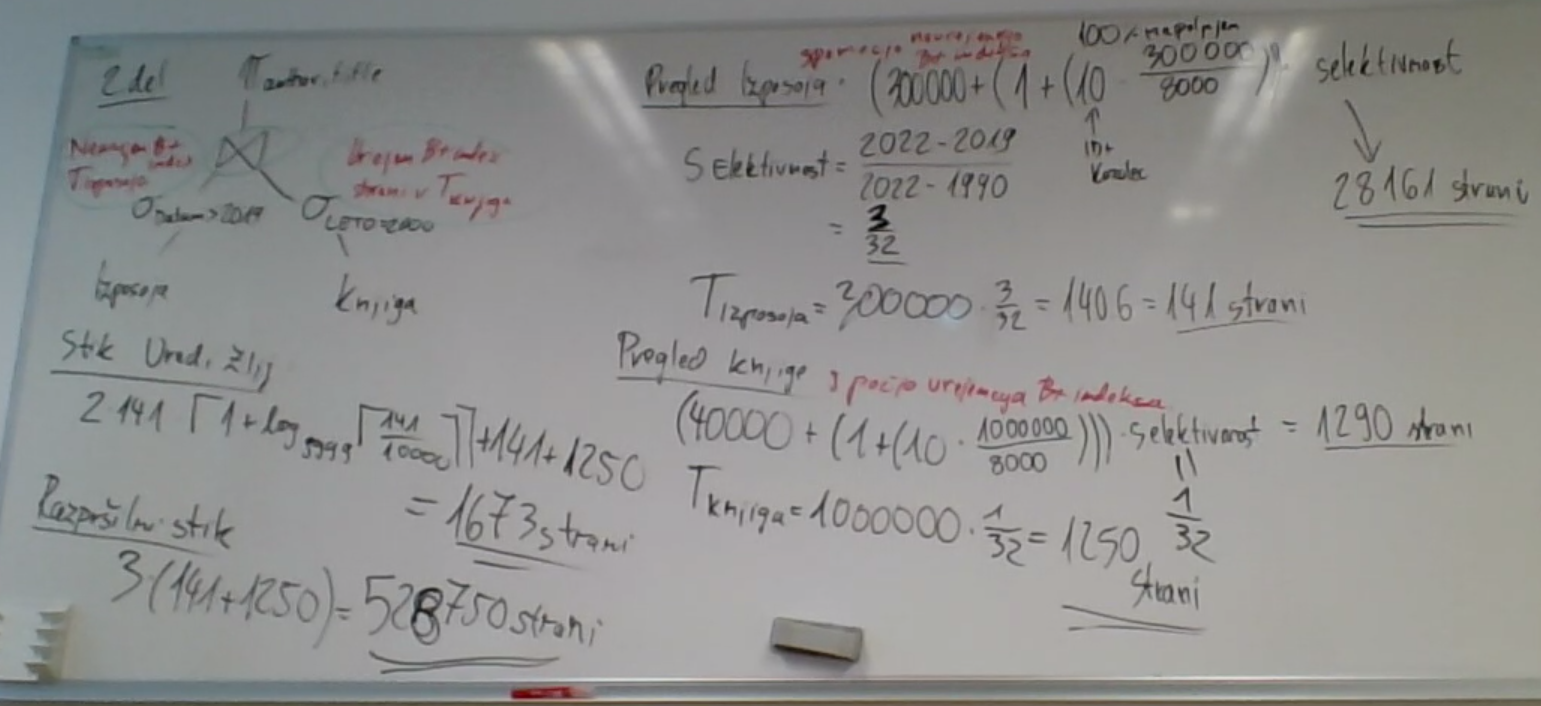 2 del
π author.title
Neurejen B+ indeks
T izposoja
Urejen B+ index
strani v T knjiga
σ Datum>2019
σ LETO=2000
Izposoja
knjiga
Stik Ured. zlij
2·141 ⌈1+log 9999 ⌈141/10000⌉⌉+141+1250
= 1673 strani
Razpršilni stik
3(141+1250)= 528750 strani
100% napolnjen
Pregled Izposoja: (300000+(1+(10· 300000/8000))· selektivnost
int
kazalec
28161 strani
Selektivnost = 2022-2019/2022-1990
= 3/32
T izposoja = 300000· 3/32 = 1406 = 141 strani
Pregled knjige
urejenega B+ indeksa
(40000 + (1+(10· 1000000/8000)))· selektivnost = 1290 strani
1/32
T knjiga = 1000000· 1/32 = 1250
strani